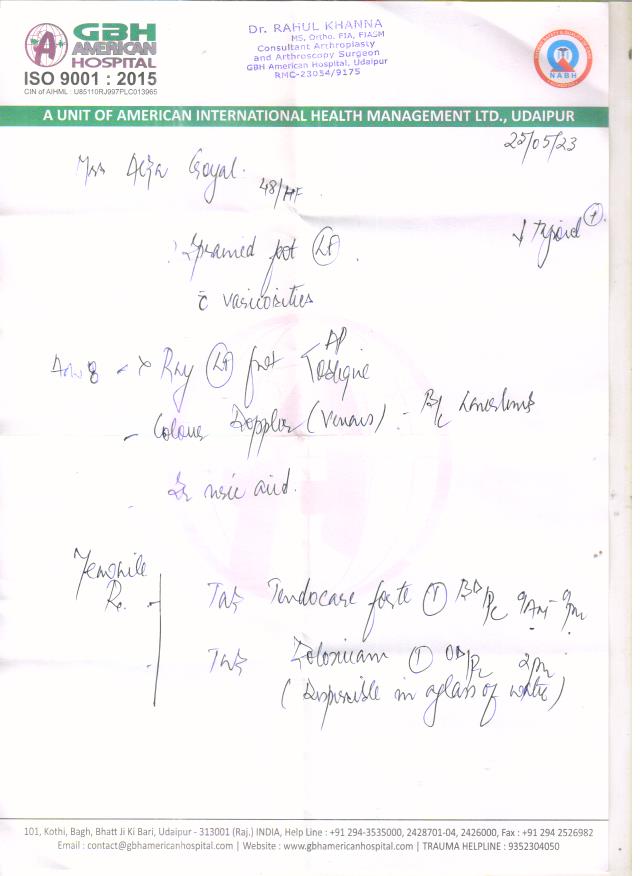 GBH
AMERICAN
HOSPITAL
ISO 9001 : 2015
CIN of AIHML : U85110RJ997PLC013965
Dr. RAHUL KHANNA
MS, Ortho. FIA, FIASM
Consultant Arthroplasty
and Arthroscopy Surgeon
GBH American Hospital, Udaipur
RMC-23034/9175
NABH
A UNIT OF AMERICAN INTERNATIONAL HEALTH MANAGEMENT LTD., UDAIPUR
25/05/23
Goyal
48/
foot Lt
c varicosities
Adv - X Ray Lt foot AP
- Colour Doppler (Venous) - B/L
uric acid.
Rx
Tab Tendocare forte 1 BD/PC 9AM - 9PM
Tab 1 OD/PC 2PM
(Dispersible in a glass of water)
101, Kothi, Bagh, Bhatt Ji Ki Bari, Udaipur - 313001 (Raj.) INDIA, Help Line : +91 294-3535000, 2428701-04, 2426000, Fax : +91 294 2526982
Email : contact@gbhamericanhospital.com | Website : www.gbhamericanhospital.com | TRAUMA HELPLINE : 9352304050